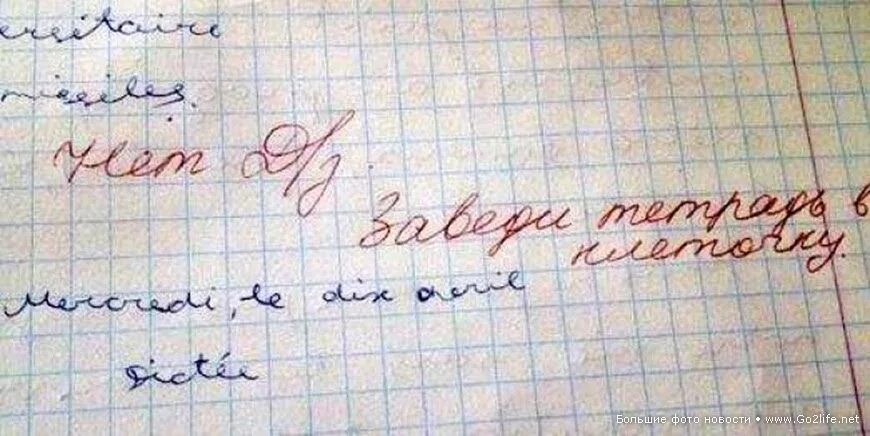 missiles.
Нет Д/з.
Заведи тетрадь в
клеточку.
Mercredi, le dix avril
Dictée
Большие фото новости • www.Go2life.net